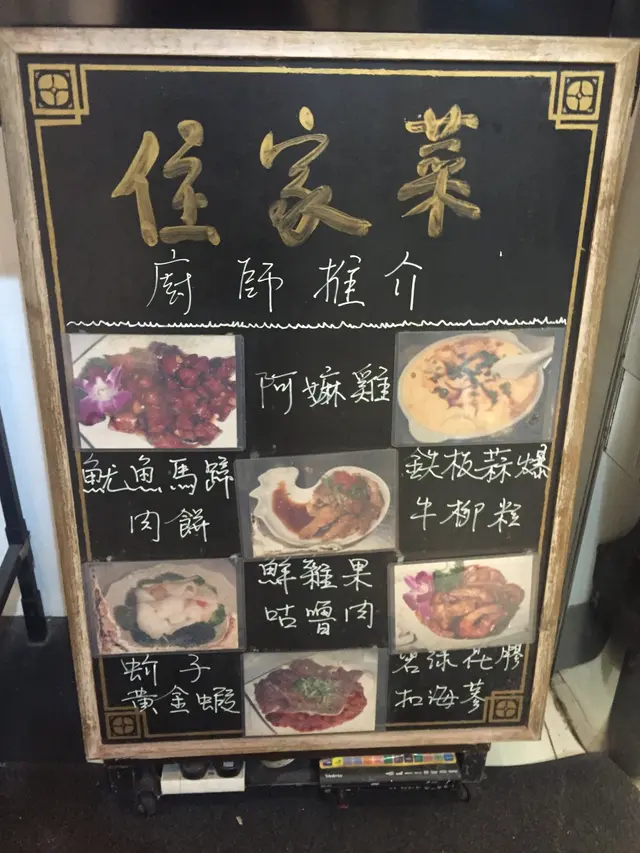 住家菜
廚師推介
阿嫲雞
魷魚馬蹄
肉餅
鉄板蒜爆
牛柳粒
鮮雜果
咕嚕肉
子
黃金蝦
花膠
扣海蔘